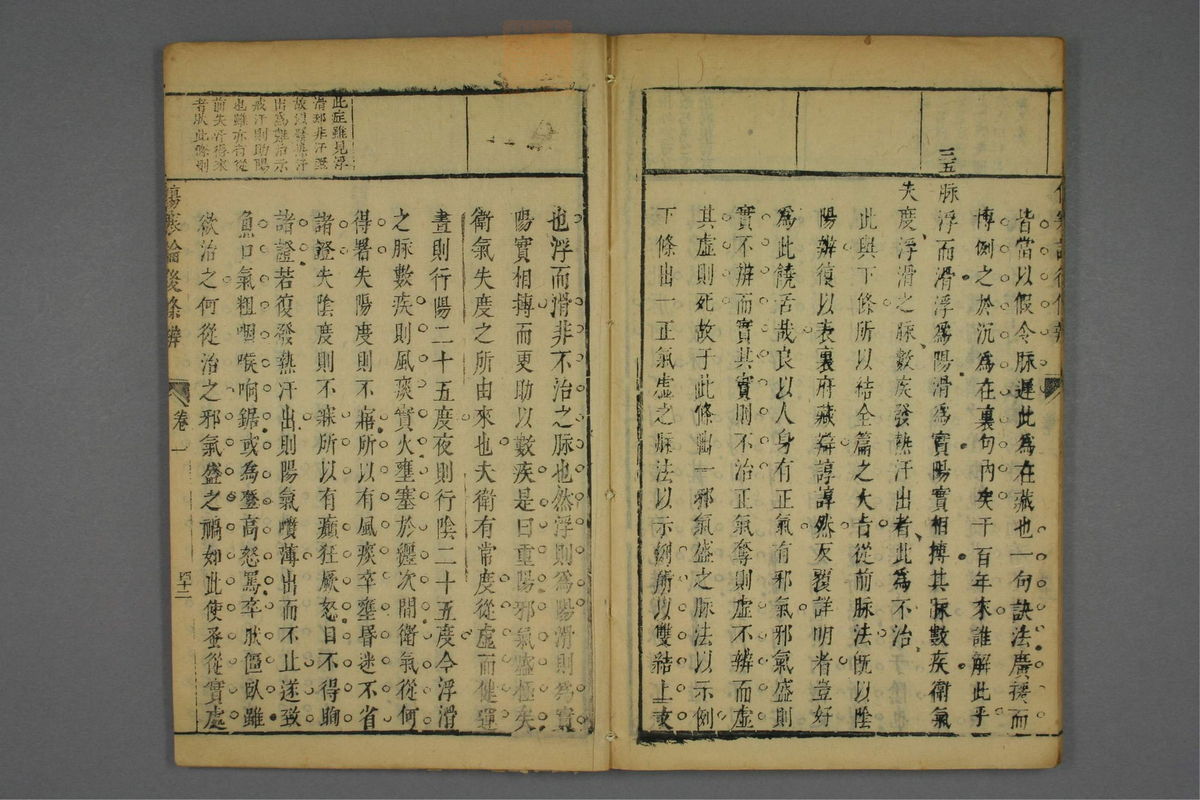 皆當以假令脉遲此為在藏也一句訣法廣援而
博例之於沉為在裏句內矣干百年來誰解此乎
三五
脉浮而滑浮為陽滑為實陽實相摶其脉數疾衛氣
失度浮滑之脉數疾發熱汗出者此為不治
此與下條所以結全篇之大旨從前脉法既以陰
陽辨復以表裏府藏辨諄諄然反覆詳明者豈好
為此饒舌哉良以人身有正氣有邪氣邪氣盛則
實不辨而實其實則不治正氣奪則虛不辨而虛
其虛則死故于此條出一邪氣盛之脉法以示例
下條出一正氣虛之脉法以示例所以雙結上文
也浮而滑非不治之脉也然浮則為陽滑則為實
陽實相摶而更助以數疾是曰重陽邪氣盛極矣
衛氣失度之所由來也夫衛有常度從虛而健運
晝則行陽二十五度夜則行陰二十五度今浮滑
之脉數疾則風痰實火壅塞於軀次間衛氣從何
得署失陽度則不寤所以有風痰卒壅昏迷不省
諸證失陰度則不寐所以有癲狂厥怒目不得瞑
諸證若復發熱汗出則陽氣噴薄出而不止遂致
魚口氣粗咽喉响鋸或為登高怒罵卒狀僵臥雖
欲治之何從治之邪氣盛之禍如此使蚤從實處
此症雖見浮
滑却非汗證
故以發熱汗
出為難治示
戒汗則助陽
也雖亦有從
前失汗得來
者然此條則
傷寒論後條辨
卷一
四十二